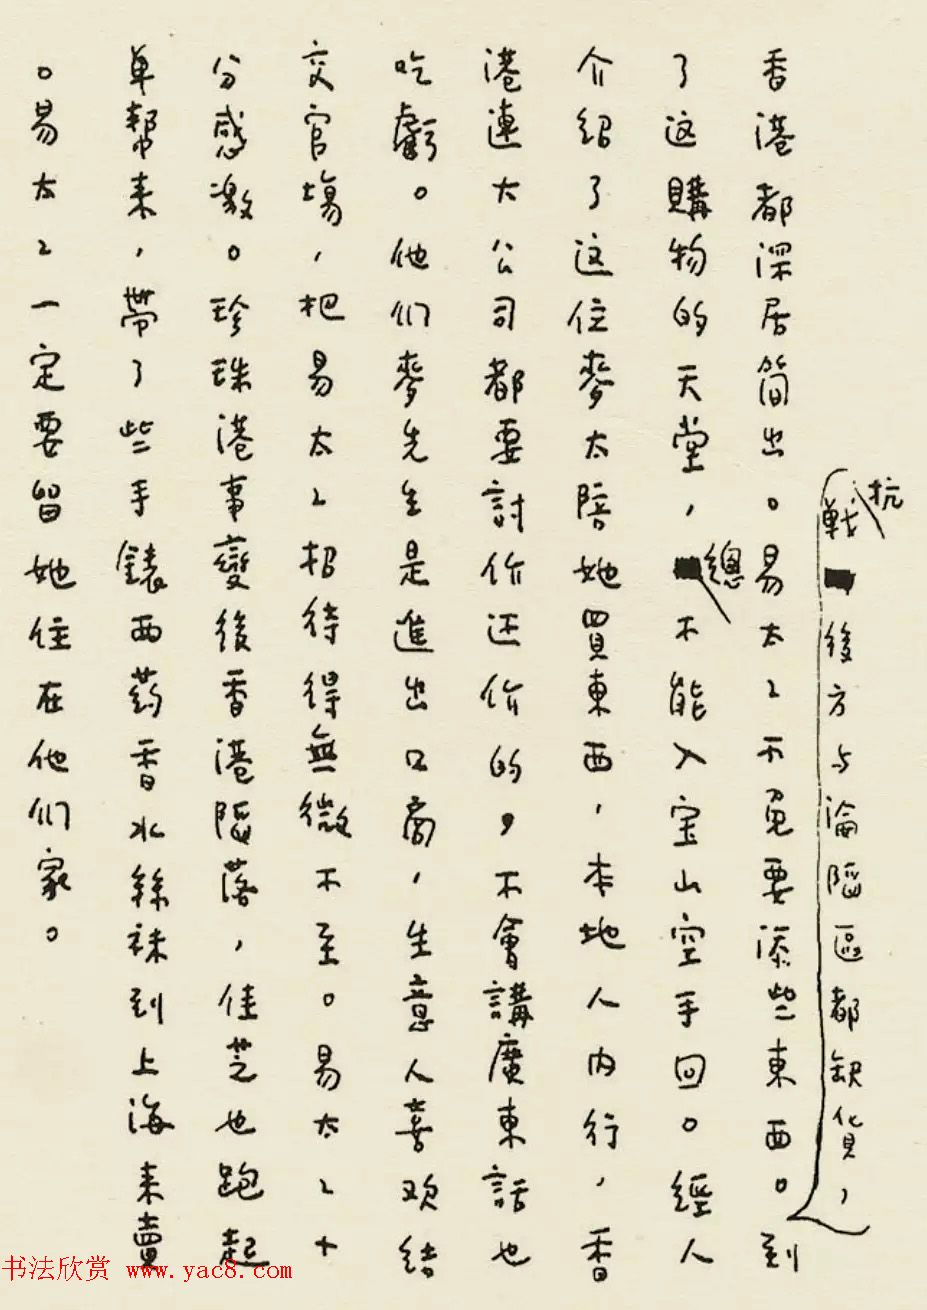 抗
戰後方与淪陷區都缺貨，
香港都深居简出。易太〻不免要添些東西。到
了这購物的天堂，總不能入宝山空手回。經人
介紹了这位麥太陪她買東西，本地人内行，香
港連大公司都要討价还价的，不會講廣東話也
吃虧。他们麥先生是進出口商，生意人喜欢结
交官場，把易太〻招待得無微不至。易太〻十
分感激。珍珠港事變後香港陷落，佳芝也跑起
单幫来，帶了些手錶西药香水絲袜到上海来賣
。易太〻一定要留她住在他们家。
书法欣赏 www.yac8.com